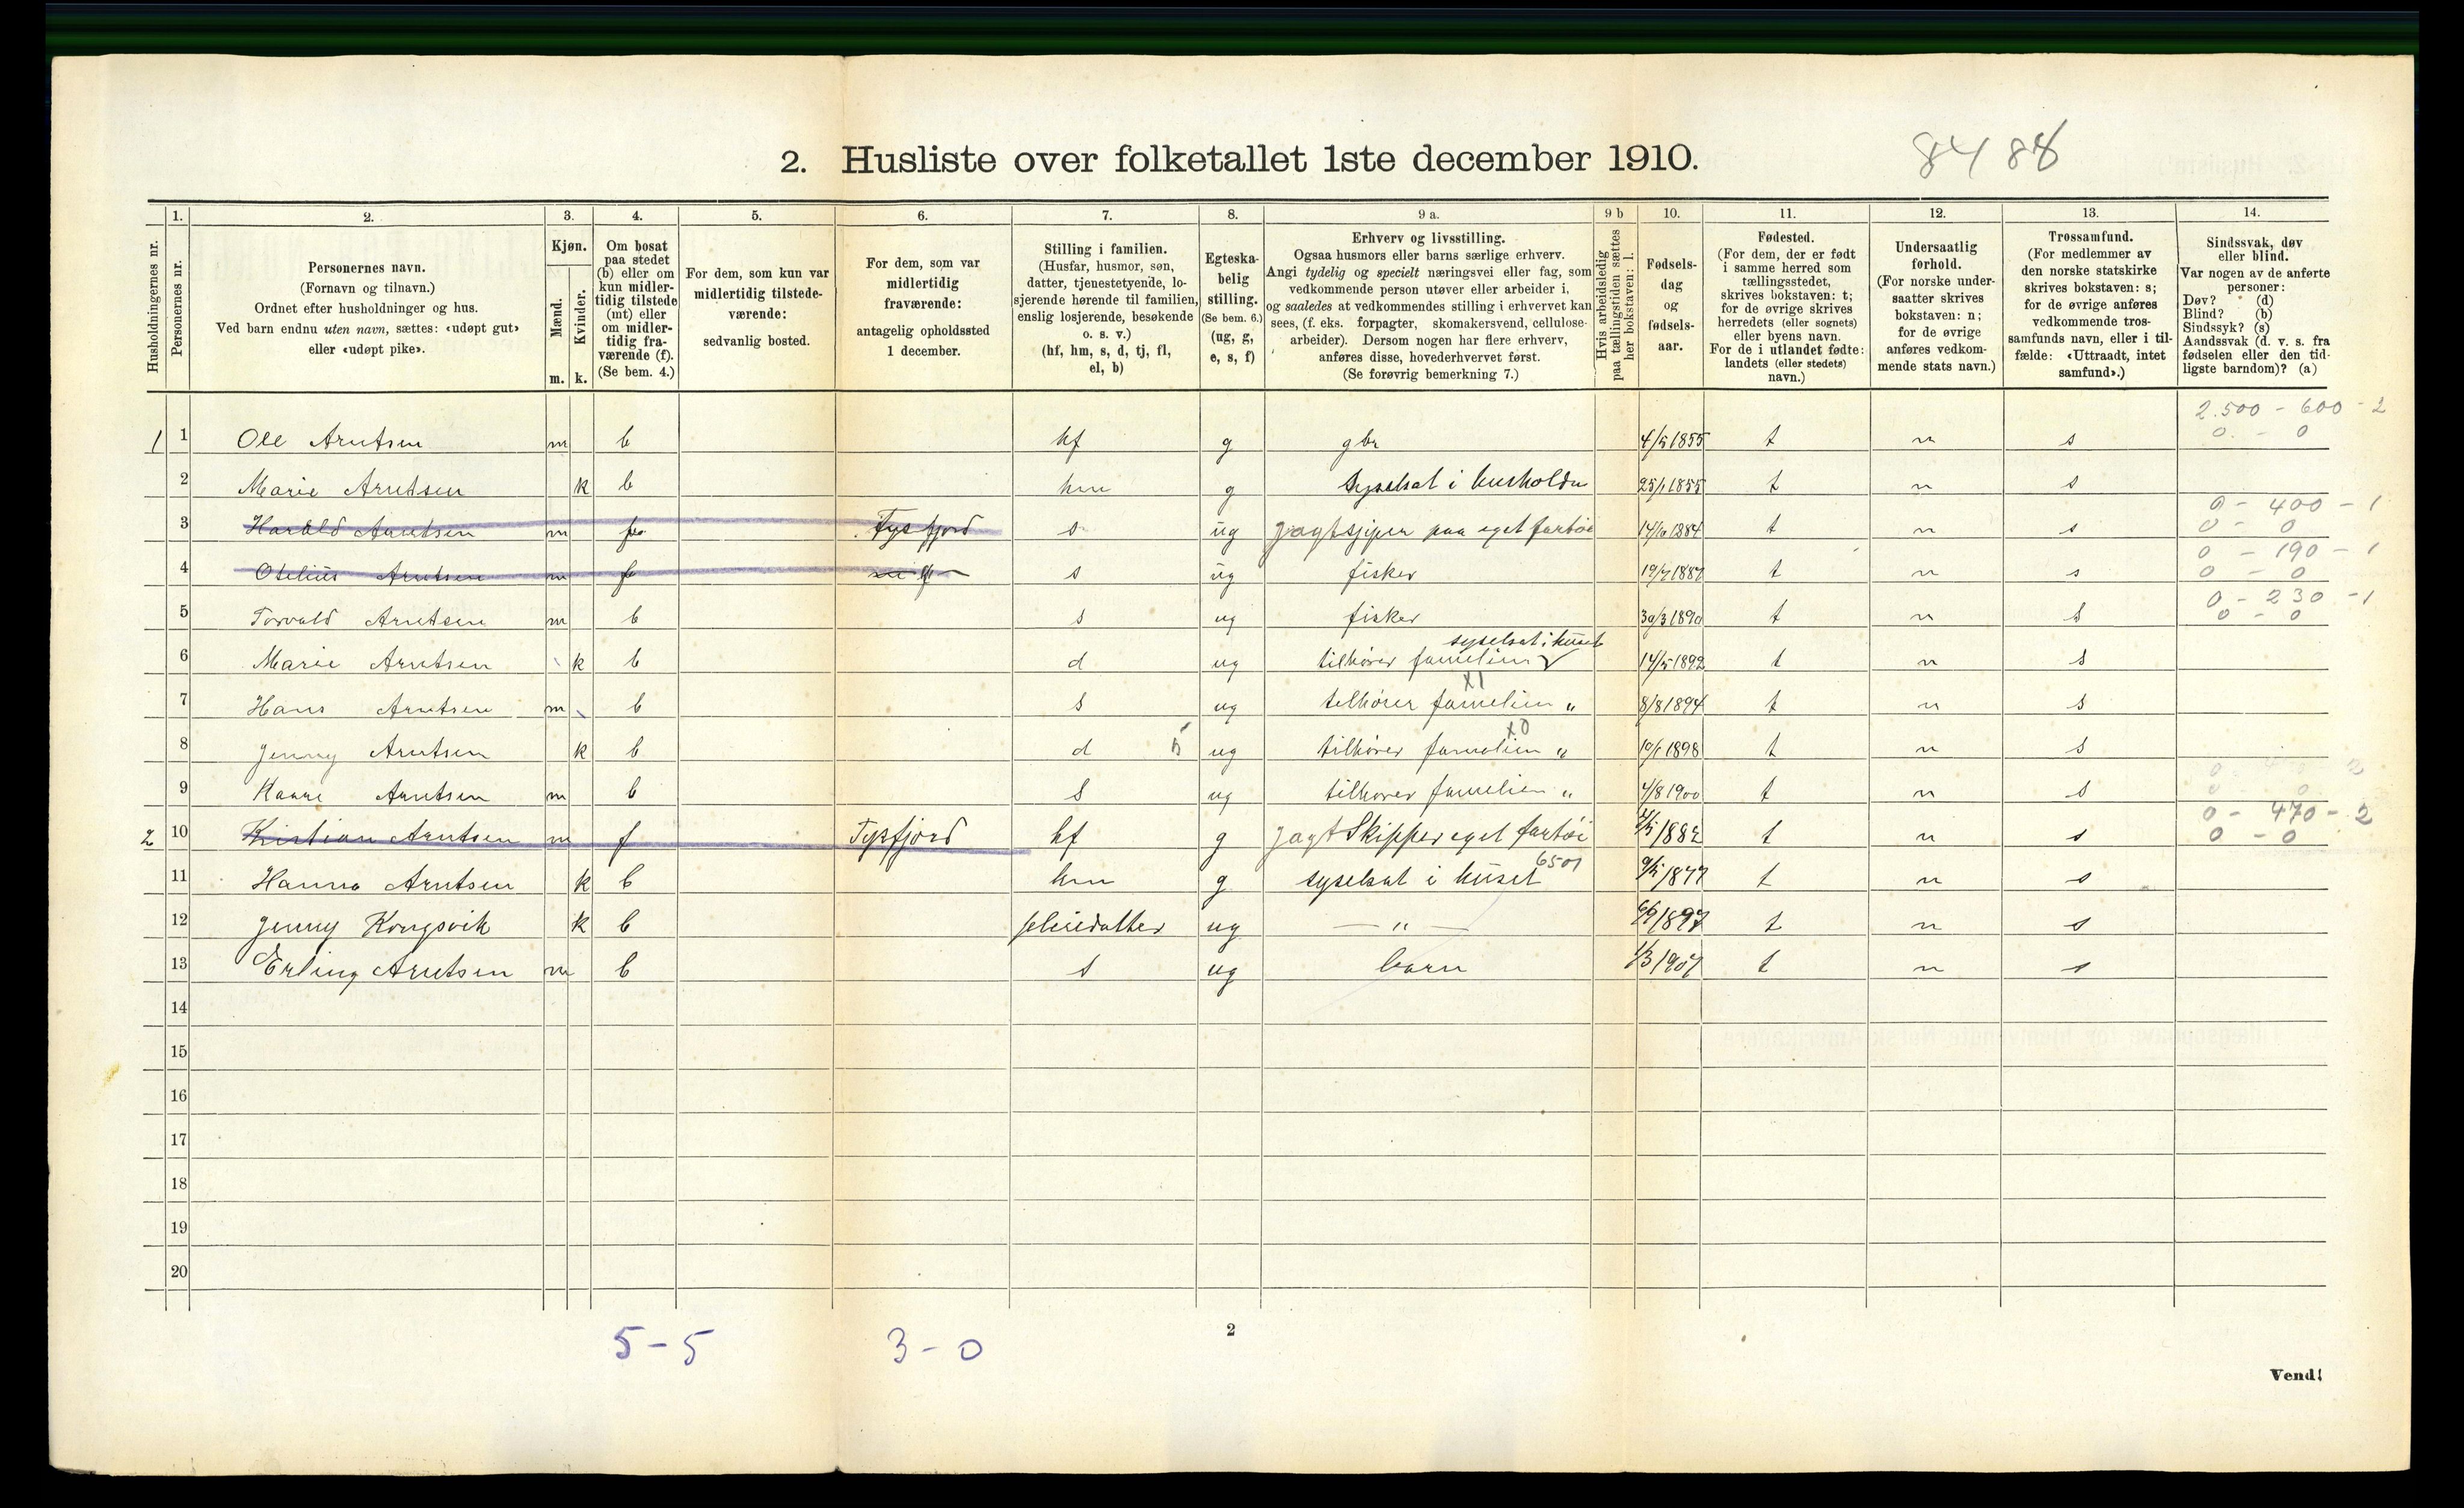 2. Husliste over folketallet 1ste december 1910.
8488
Husholdningernes nr.
1. Personernes nr.
2. Personernes navn.
(Fornavn og tilnavn.)
Ordnet efter husholdninger og hus.
Ved barn endnu uten navn, sættes: «udøpt gut»
eller «udøpt pike».
3. Kjøn.
Mænd. m.
Kvinder. k.
4. Om bosat
paa stedet
(b) eller om
kun midler-
tidig tilstede
(mt) eller
om midler-
tidig fra-
værende (f).
(Se bem. 4.)
5. For dem, som kun var
midlertidig tilstede-
værende:
sedvanlig bosted.
6. For dem, som var
midlertidig
fraværende:
antagelig opholdssted
1 december.
7. Stilling i familien.
(Husfar, husmor, søn,
datter, tjenestetyende, lo-
sjerende hørende til familien,
enslig losjerende, besøkende
o. s. v.)
(hf, hm, s, d, tj, fl,
el, b)
8. Egteska-
belig
stilling.
(Se bem. 6.)
(ug, g,
e, s, f)
9 a. Erhverv og livsstilling.
Ogsaa husmors eller barns særlige erhverv.
Angi tydelig og specielt næringsvei eller fag, som
vedkommende person utøver eller arbeider i,
og saaledes at vedkommendes stilling i erhvervet kan
sees, (f. eks. forpagter, skomakersvend, cellulose-
arbeider). Dersom nogen har flere erhverv,
anføres disse, hovederhvervet først.
(Se forøvrig bemerkning 7.)
9 b Hvis arbeidsledig
paa tællingstiden sættes
her bokstaven: l.
10. Fødsels-
dag
og
fødsels-
aar.
11. Fødested.
(For dem, der er født
i samme herred som
tællingsstedet,
skrives bokstaven: t;
for de øvrige skrives
herredets (eller sognets)
eller byens navn.
For de i utlandet fødte:
landets (eller stedets)
navn.)
12. Undersaatlig
forhold.
(For norske under-
saatter skrives
bokstaven: n;
for de øvrige
anføres vedkom-
mende stats navn.)
13. Trossamfund.
(For medlemmer av
den norske statskirke
skrives bokstaven: s;
for de øvrige anføres
vedkommende tros-
samfunds navn, eller i til-
fælde: «Uttraadt, intet
samfund».)
14. Sindssvak, døv
eller blind.
Var nogen av de anførte
personer:
Døv? (d)
Blind? (b)
Sindssyk? (s)
Aandssvak (d. v. s. fra
fødselen eller den tid-
ligste barndom)? (a)
2.500 - 600 - 2
1 1 Ole Arntsen m b hf g gbr 4/5 1855 t n s 0 - 0
2 Marie Arntsen k b hm g Syselsat i husholdn 25/1 1855 t n s
0 - 400 - 1
3 Harald Arntsen m f Tysfjord s ug Jagtsjiper paa eget fartøi 14/10 1884 t n s 0 - 0
0 - 190 - 1
4 Otelius Arntsen m f s ug fisker 19/7 1887 t n s 0 - 0
0 - 230 - 1
5 Torvald Arntsen m b s ug fisker 30/3 1890 t n s 0 - 0
syselsat i huset
6 Marie Arntsen k b d ug tilhører famelien 14/5 1892 t n s
x1
7 Hans Arntsen m b s ug telhører famelien " 8/8 1894 t n s
x0
8 Jenny Arntsen k b d 5 ug tilhører famelien " 10/1 1898 t n s
9 Kaare Arntsen m b s ug tilhører famelien " 4/8 1900 t n s
0 - 470 - 2
2 10 Kristian Arntsen m f Tysfjord hf g Jagt Skipper eget fartøi 4/5 1882 t n s 0 - 0
6501
11 Hanna Arntsen k b hm g syselsat i huset 9/5 1877 t n s
12 Jenny Kongsvik k b pleiedatter ug — " — 6/9 1897 t n s
13 Erling Arntsen m b s ug barn 1/3 1907 t n s
14
15
16
17
18
19
20
5 - 5 3 - 0
2
Vend!